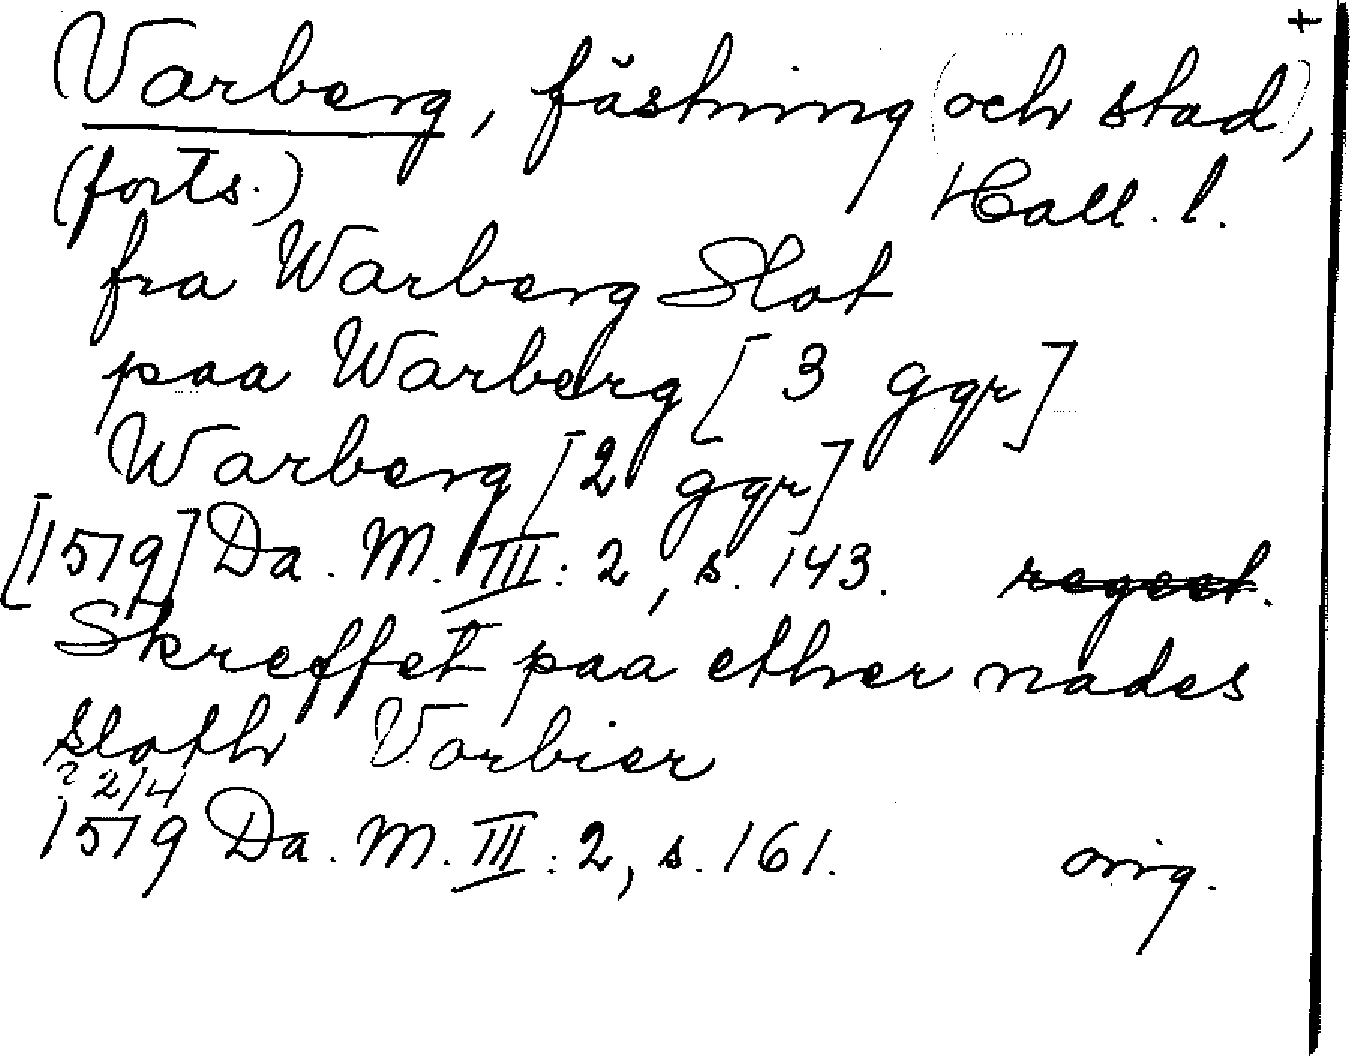 Varberg, fästning (och stad),
(forts.) Hall. l.
fra Warberg Slot
paa Warberg [3 ggr]
Warberg [2 ggr]
[1579] Da. M. III: 2, s. 143. regest.
Skreffet paa ether nades
slothr Varbier
? 2/4
1579 Da. M. III: 2, s. 161. orig.